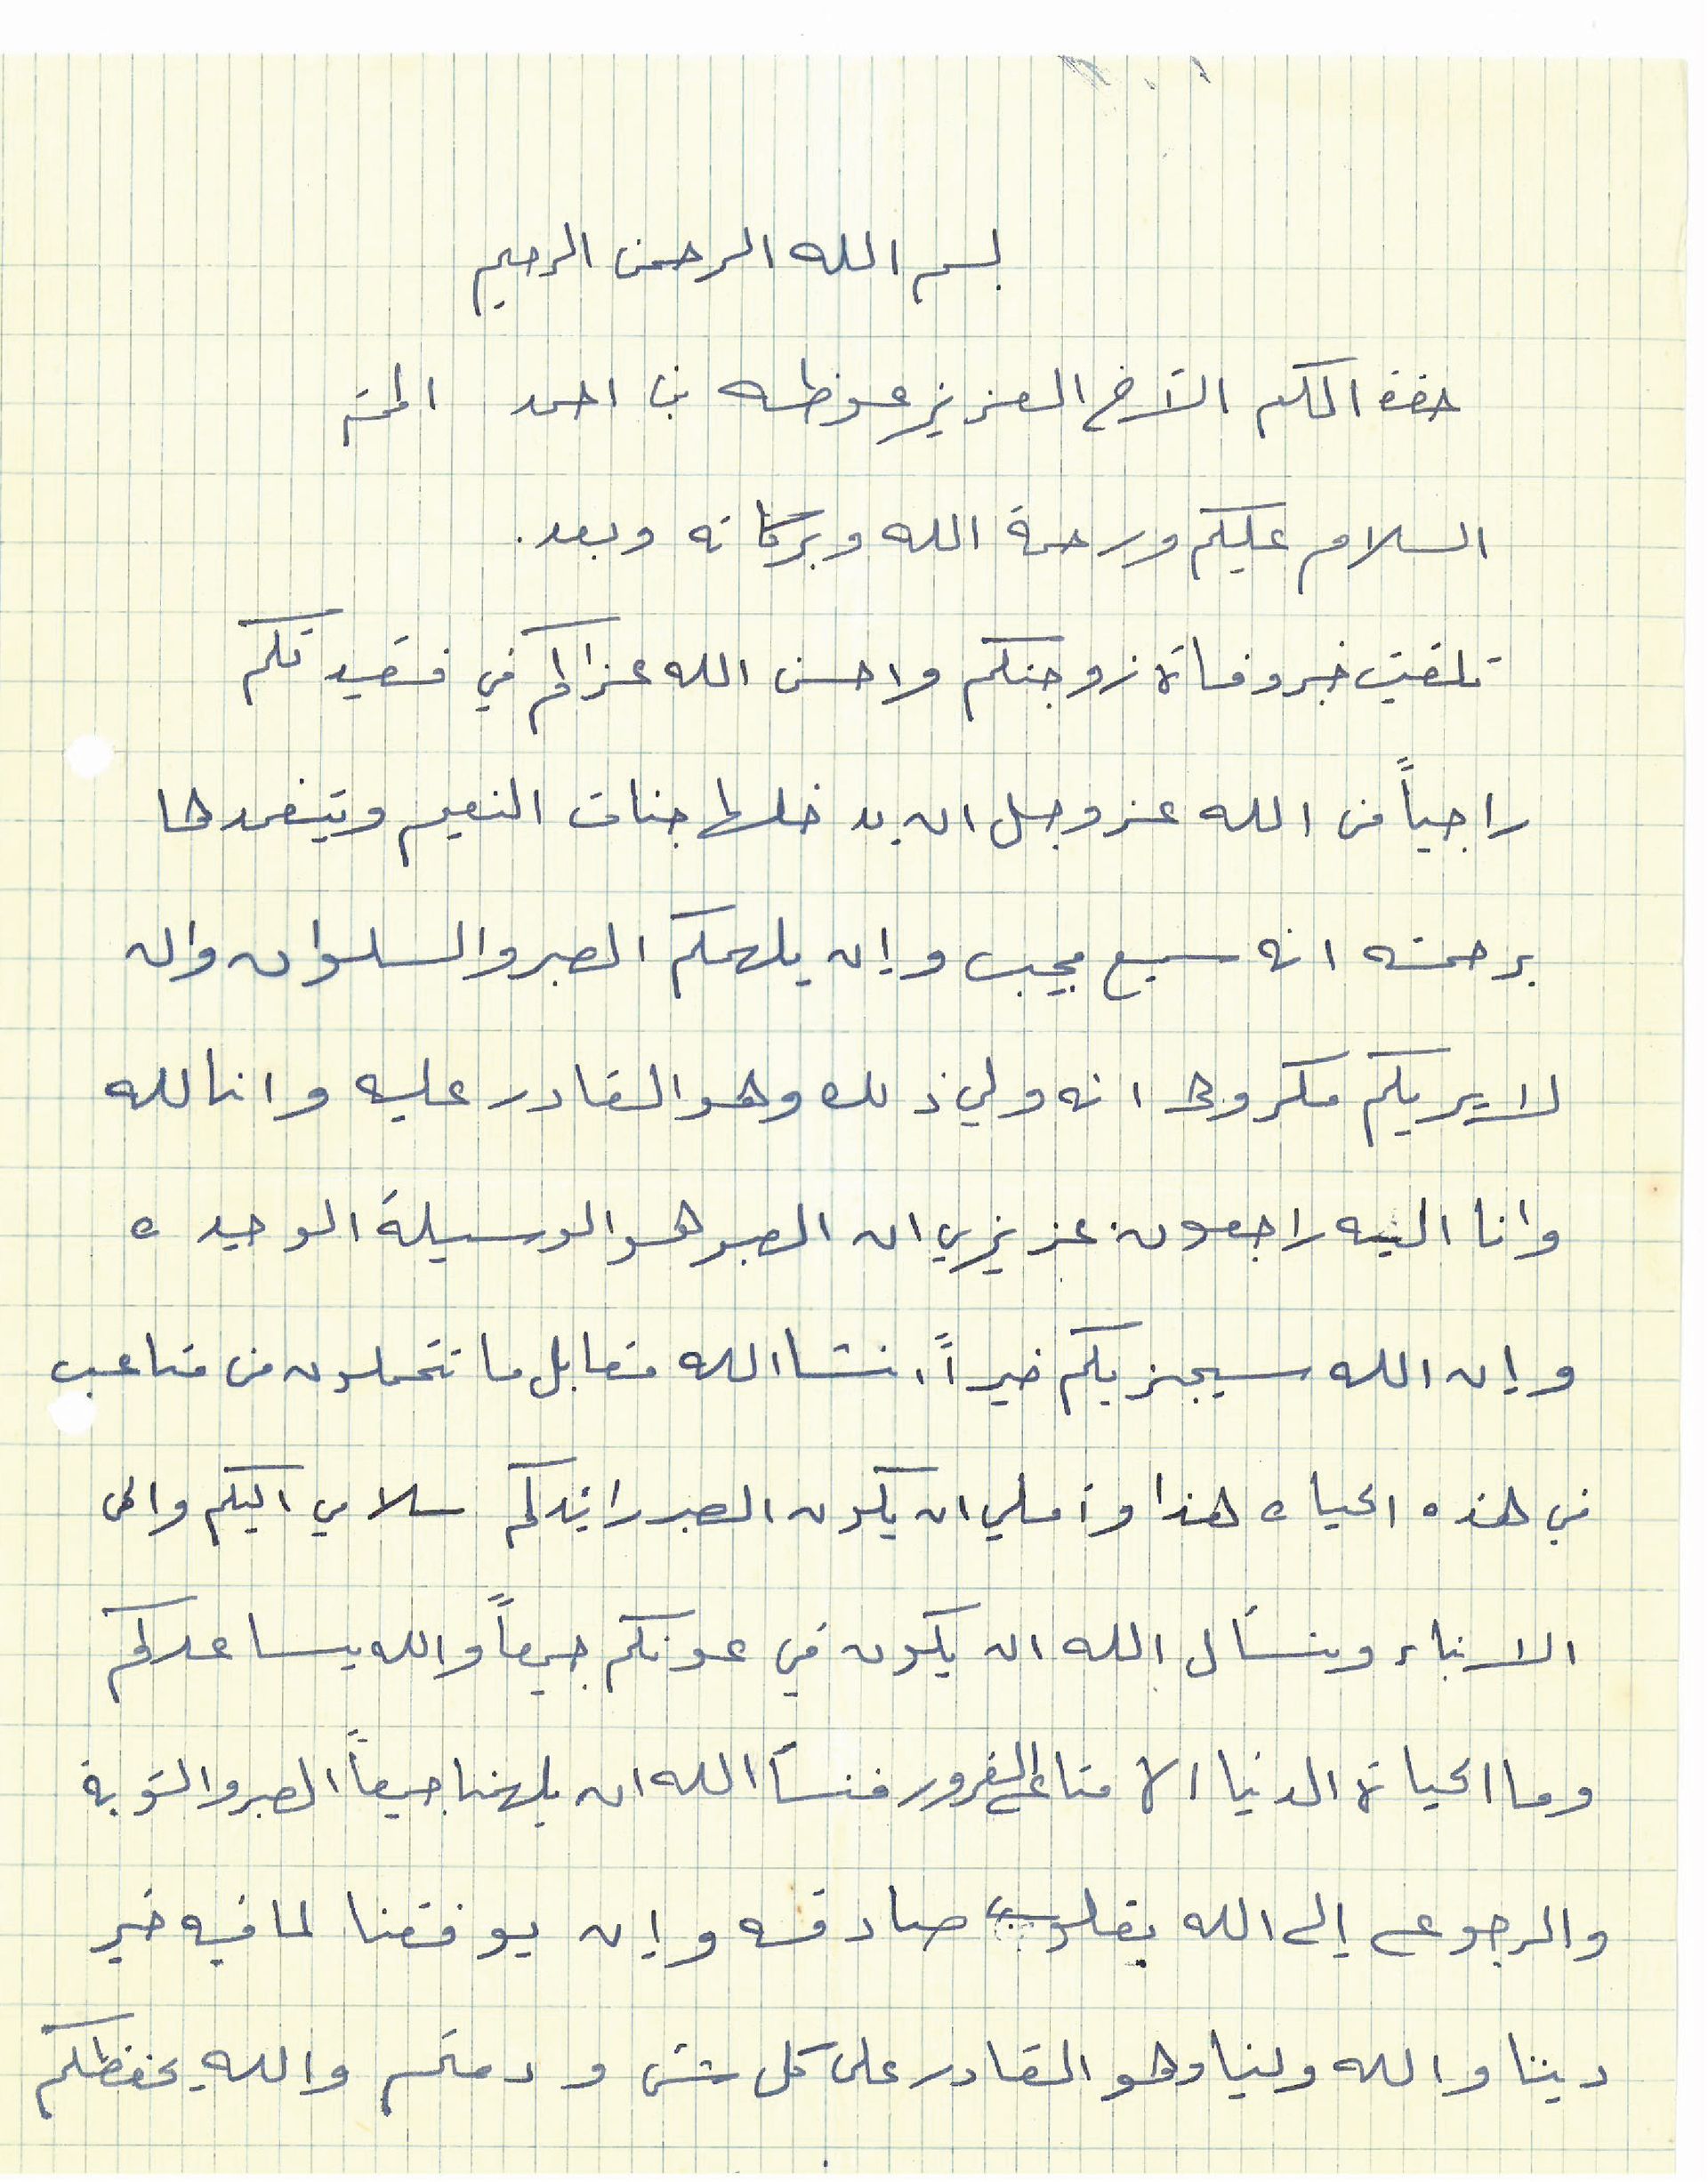 بسم الله الرحمن الرحيم
حضرة المكرم الأخ العزيز عوظه بن احمد المحترم
السلام عليكم ورحمة الله وبركاته وبعد.
تلقيت خبر وفاة زوجتكم واحسن الله عزاكم في فقيدتكم
راجياً من الله عز وجل ان يدخلها جنات النعيم ويتغمدها
برحمته انه سميع مجيب وإن يلهمكم الصبر والسلوان وان
لا يريكم مكروها انه ولي ذلك وهو القادر عليه وانا لله
وانا اليه راجعون عزيزي ان الصبر هو الوسيلة الوحيده
وإن الله سيجزيكم خيراً انشا الله مقابل ما تتحملون من متاعب
في هذه الحياه هذا وأملي ان يكون الصبر رائدكم سلامي اليكم والى
الابناء ونسأل الله ان يكون في عونكم جميعاً والله يساعدكم
وما الحياة الدنيا الا متاع الغرور فنسأ الله ان يلهمنا جميعاً الصبر والتوبة
والرجوع إلى الله بقلوب صادقه وإن يوفقنا لما فيه خير
ديننا والله ولينا وهو القادر على كل شئ ودمتم والله يحفظكم